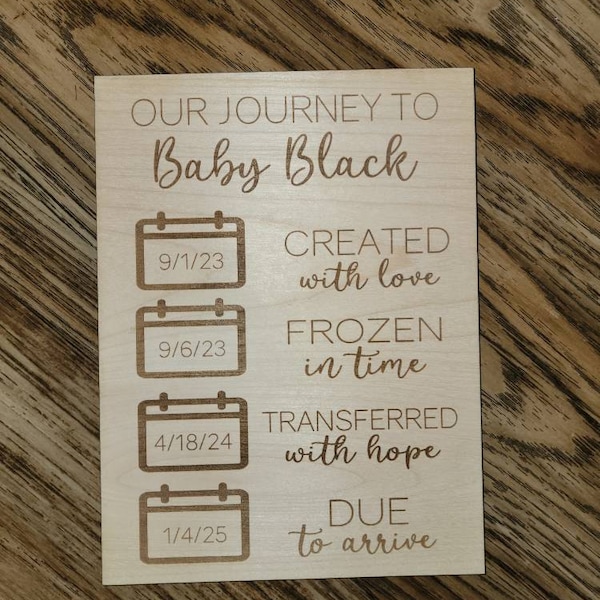 OUR JOURNEY TO
Baby Black
9/1/23
CREATED
with love
9/6/23
FROZEN
in time
4/18/24
TRANSFERRED
with hope
1/4/25
DUE
to arrive